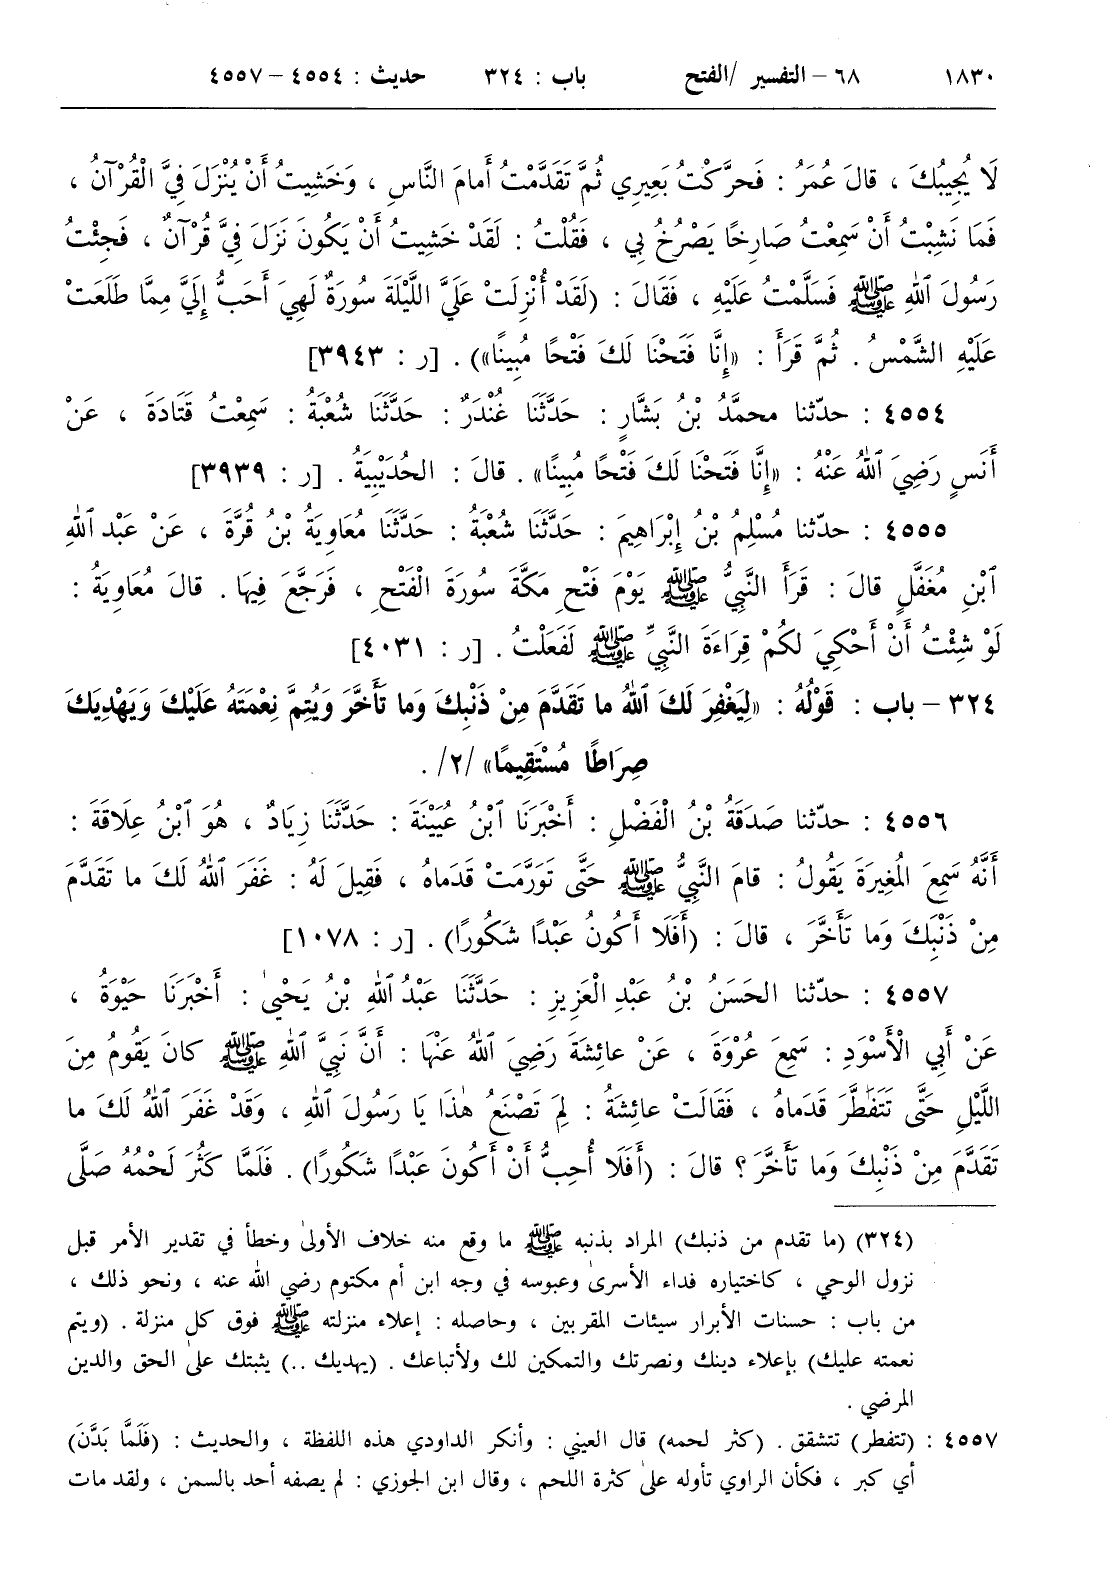 ١٨٣٠ ٦٨ - التفسير /الفتح باب : ٣٢٤ حديث : ٤٥٥٤ - ٤٥٥٧
لَا يُجِيبُكَ ، قالَ عُمَرُ : فَحَرَّكْتُ بَعِيرِي ثُمَّ تَقَدَّمْتُ أَمامَ النَّاسِ ، وَخَشِيتُ أَنْ يُنْزَلَ فِيَّ الْقُرْآنُ ،
فَمَا نَشِبْتُ أَنْ سَمِعْتُ صَارِخًا يَصْرُخُ بِي ، فَقُلْتُ : لَقَدْ خَشِيتُ أَنْ يَكُونَ نَزَلَ فِيَّ قُرْآنٌ ، فَجِئْتُ
رَسُولَ ٱللهِ ﷺ فَسَلَّمْتُ عَلَيْهِ ، فَقَالَ : (لَقَدْ أُنْزِلَتْ عَلَيَّ اللَّيْلَةَ سُورَةٌ لَهِيَ أَحَبُّ إِلَيَّ مِمَّا طَلَعَتْ
عَلَيْهِ الشَّمْسُ . ثُمَّ قَرَأَ : «إِنَّا فَتَحْنَا لَكَ فَتْحًا مُبِينًا») . [ر : ٣٩٤٣]
٤٥٥٤ : حدّثنا محمَّدُ بْنُ بَشَّارٍ : حَدَّثَنَا غُنْدَرٌ : حَدَّثَنَا شُعْبَةُ : سَمِعْتُ قَتَادَةَ ، عَنْ
أَنَسٍ رَضِيَ ٱللهُ عَنْهُ : «إِنَّا فَتَحْنَا لَكَ فَتْحًا مُبِينًا» . قالَ : الحُدَيْبِيَةُ . [ر : ٣٩٣٩]
٤٥٥٥ : حدّثنا مُسْلِمُ بْنُ إِبْرَاهِيمَ : حَدَّثَنَا شُعْبَةُ : حَدَّثَنَا مُعَاوِيَةُ بْنُ قُرَّةَ ، عَنْ عَبْدِ ٱللهِ
ٱبْنِ مُغَفَّلٍ قالَ : قَرَأَ النَّبِيُّ ﷺ يَوْمَ فَتْحِ مَكَّةَ سُورَةَ الْفَتْحِ ، فَرَجَّعَ فِيهَا . قالَ مُعَاوِيَةُ :
لَوْ شِئْتُ أَنْ أَحْكِيَ لَكُمْ قِرَاءَةَ النَّبِيِّ ﷺ لَفَعَلْتُ . [ر : ٤٠٣١]
٣٢٤ - باب : قَوْلُهُ : «لِيَغْفِرَ لَكَ ٱللهُ ما تَقَدَّمَ مِنْ ذَنْبِكَ وَما تَأَخَّرَ وَيُتِمَّ نِعْمَتَهُ عَلَيْكَ وَيَهْدِيَكَ
صِرَاطًا مُسْتَقِيمًا» /٢/ .
٤٥٥٦ : حدّثنا صَدَقَةُ بْنُ الْفَضْلِ : أَخْبَرَنَا ٱبْنُ عُيَيْنَةَ : حَدَّثَنَا زِيَادٌ ، هُوَ ٱبْنُ عِلَاقَةَ :
أَنَّهُ سَمِعَ المُغِيرَةَ يَقُولُ : قامَ النَّبِيُّ ﷺ حَتَّى تَوَرَّمَتْ قَدَماهُ ، فَقِيلَ لَهُ : غَفَرَ ٱللهُ لَكَ ما تَقَدَّمَ
مِنْ ذَنْبِكَ وَما تَأَخَّرَ ، قالَ : (أَفَلَا أَكُونُ عَبْدًا شَكُورًا) . [ر : ١٠٧٨]
٤٥٥٧ : حدّثنا الحَسَنُ بْنُ عَبْدِ الْعَزِيزِ : حَدَّثَنَا عَبْدُ ٱللهِ بْنُ يَحْيىٰ : أَخْبَرَنَا حَيْوَةُ ،
عَنْ أَبِي الْأَسْوَدِ : سَمِعَ عُرْوَةَ ، عَنْ عائِشَةَ رَضِيَ ٱللهُ عَنْهَا : أَنَّ نَبِيَّ ٱللهِ ﷺ كانَ يَقُومُ مِنَ
اللَّيْلِ حَتَّى تَتَفَطَّرَ قَدَماهُ ، فَقَالَتْ عائِشَةُ : لِمَ تَصْنَعُ هٰذَا يَا رَسُولَ ٱللهِ ، وَقَدْ غَفَرَ ٱللهُ لَكَ ما
تَقَدَّمَ مِنْ ذَنْبِكَ وَما تَأَخَّرَ ؟ قالَ : (أَفَلَا أُحِبُّ أَنْ أَكُونَ عَبْدًا شَكُورًا) . فَلَمَّا كَثُرَ لَحْمُهُ صَلَّى
(٣٢٤) (ما تقدم من ذنبك) المراد بذنبه ﷺ ما وقع منه خلاف الأولىٰ وخطأ في تقدير الأمر قبل
نزول الوحي ، كاختياره فداء الأسرىٰ وعبوسه في وجه ابن أم مكتوم رضي الله عنه ، ونحو ذلك ،
من باب : حسنات الأبرار سيئات المقربين ، وحاصله : إعلاء منزلته ﷺ فوق كل منزلة . (ويتم
نعمته عليك) بإعلاء دينك ونصرتك والتمكين لك ولأتباعك . (يهديك ..) يثبتك علىٰ الحق والدين
المرضي .
٤٥٥٧ : (تتفطر) تتشقق . (كثر لحمه) قال العيني : وأنكر الداودي هذه اللفظة ، والحديث : (فَلَمَّا بَدَّنَ)
أي كبر ، فكأن الراوي تأوله علىٰ كثرة اللحم ، وقال ابن الجوزي : لم يصفه أحد بالسمن ، ولقد مات